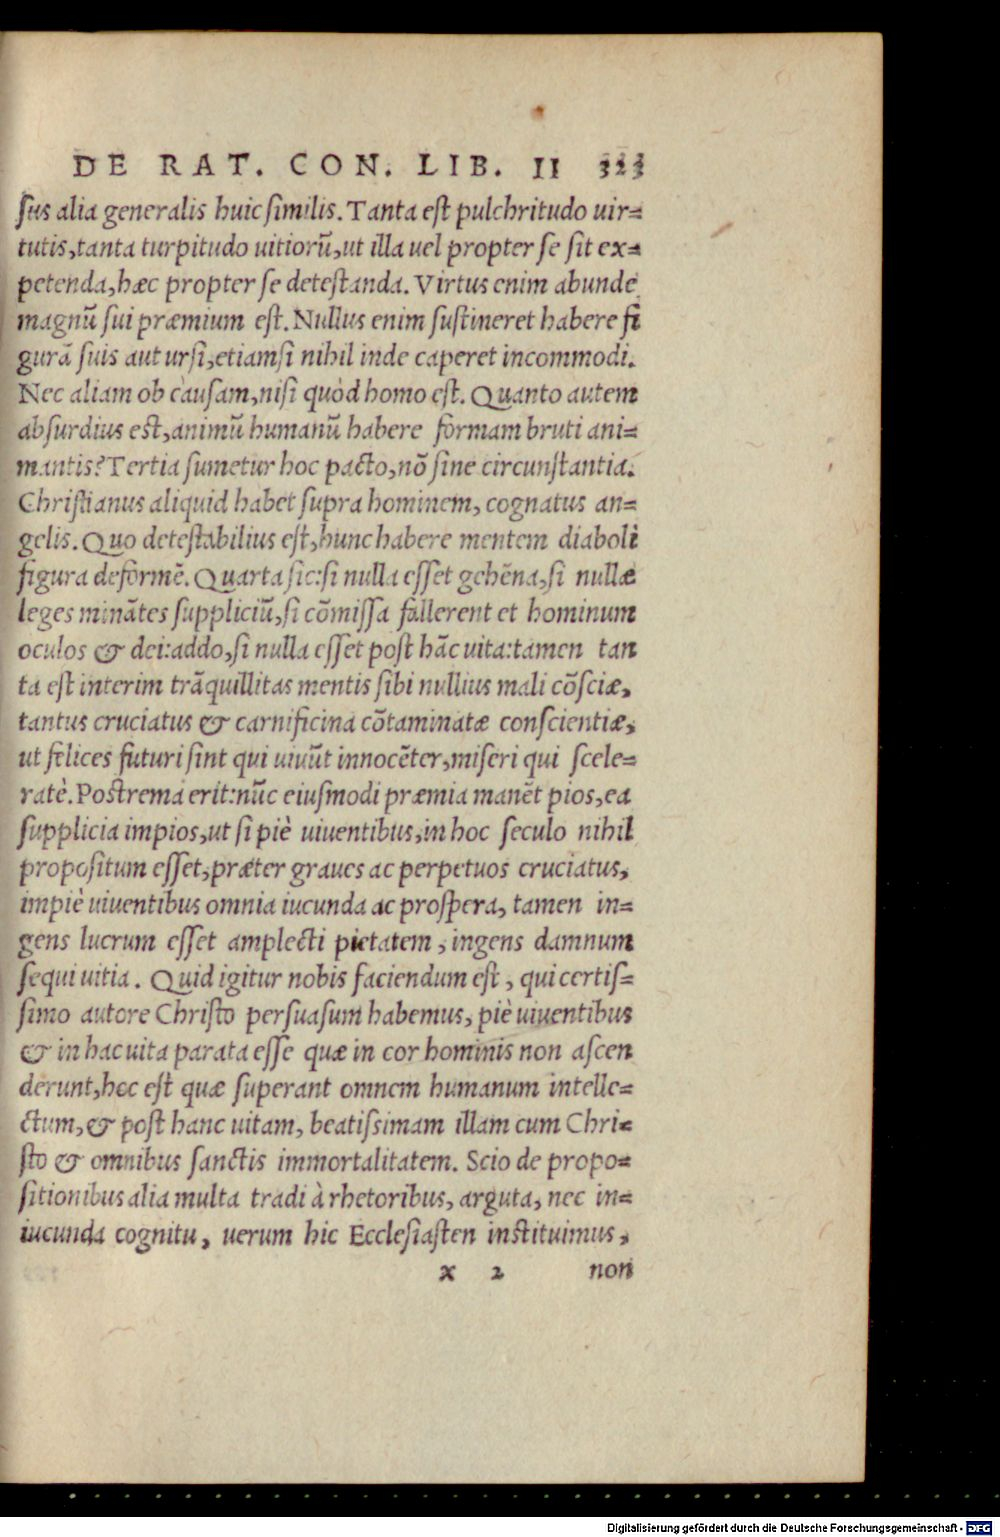 DE RAT. CON. LIB. II 323
sus alia generalis huic similis. Tanta est pulchritudo uir=
tutis, tanta turpitudo uitiorũ, ut illa uel propter se sit ex=
petenda, hæc propter se detestanda. Virtus enim abunde
magnũ sui præmium est. Nullus enim sustineret habere fi
gurã suis aut ursi, etiamsi nihil inde caperet incommodi.
Nec aliam ob causam, nisi quòd homo est. Quanto autem
absurdius est, animũ humanũ habere formam bruti ani=
mantis? Tertia sumetur hoc pacto, nõ sine circunstantia.
Christianus aliquid habet supra hominem, cognatus an=
gelis. Quo detestabilius est, hunc habere mentem diaboli
figura deformẽ. Quarta sic: si nulla esset gehẽna, si nullæ
leges minãtes suppliciũ, si cõmissa fallerent et hominum
oculos & dei: addo, si nulla esset post hãc uita: tamen tan
ta est interim trãquillitas mentis sibi nullius mali cõsciæ,
tantus cruciatus & carnificina cõtaminatæ conscientiæ,
ut felices futuri sint qui uiuũt innocẽter, miseri qui scele=
ratè. Postrema erit: nũc eiusmodi præmia manẽt pios, ea
supplicia impios, ut si piè uiuentibus, in hoc seculo nihil
propositum esset, præter graues ac perpetuos cruciatus,
impiè uiuentibus omnia iucunda ac prospera, tamen in=
gens lucrum esset amplecti pietatem, ingens damnum
sequi uitia. Quid igitur nobis faciendum est, qui certis=
simo autore Christo persuasum habemus, piè uiuentibus
& in hac uita parata esse quæ in cor hominis non ascen
derunt, hoc est quæ superant omnem humanum intelle=
ctum, & post hanc uitam, beatissimam illam cum Chri=
sto & omnibus sanctis immortalitatem. Scio de propo=
sitionibus alia multa tradi à rhetoribus, arguta, nec in=
iucunda cognitu, uerum hic Ecclesiasten instituimus,
x 2 non
Digitalisierung gefördert durch die Deutsche Forschungsgemeinschaft - DFG